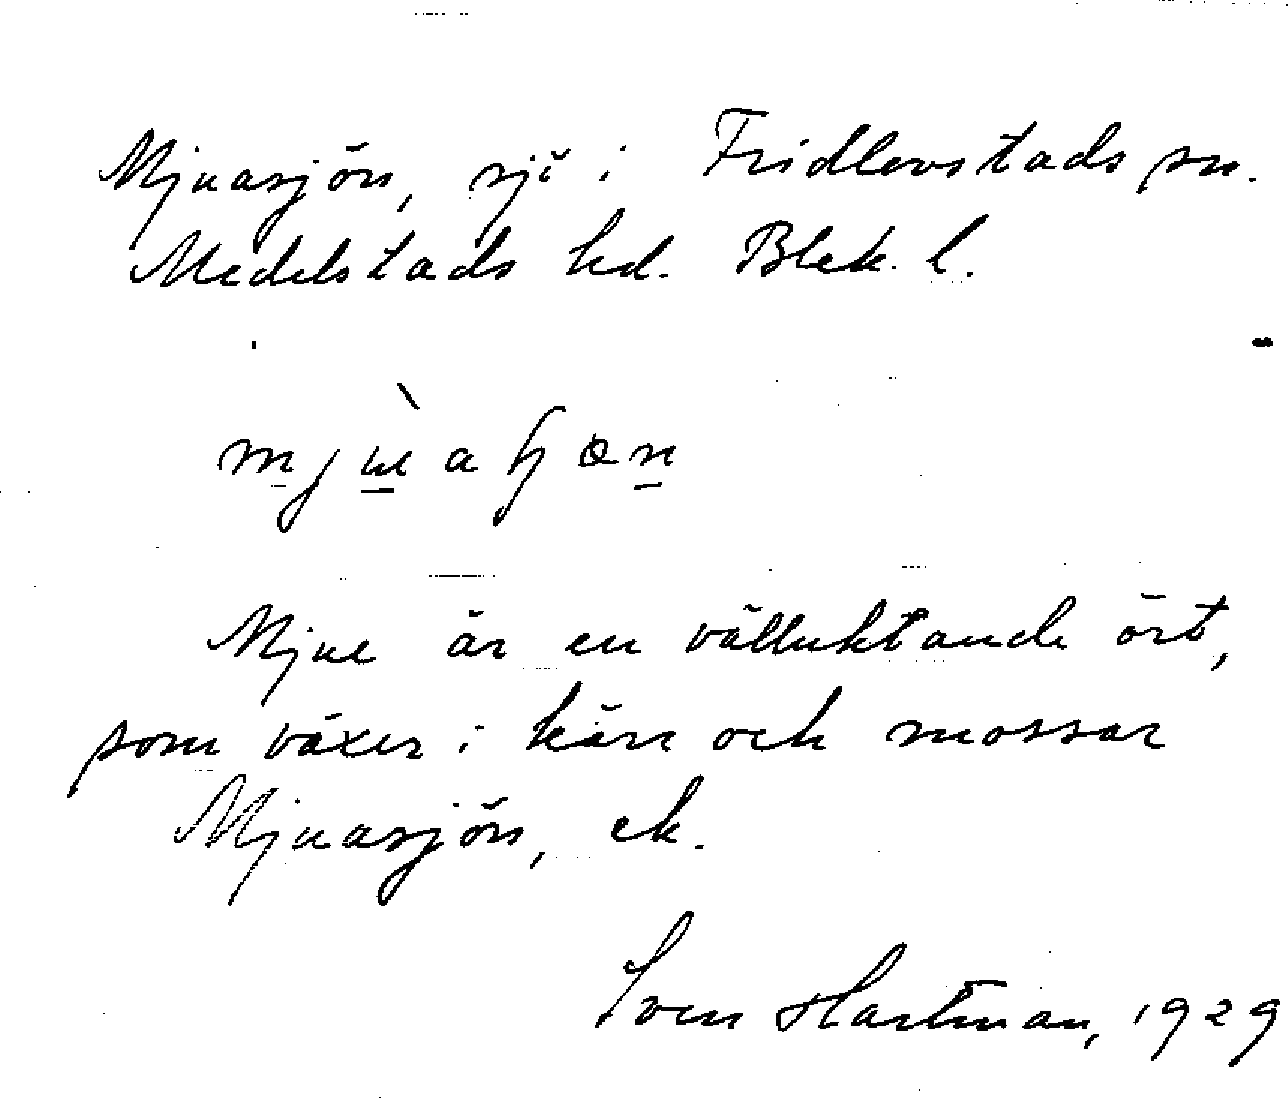 Mjuasjön, sjö i Fridlevstads sn.
Medelstads hd. Blek. l.
Mjue är en välluktande ört,
som växer i kärr och mossar
Mjuasjön, ek.
Sven Hartman, 1929